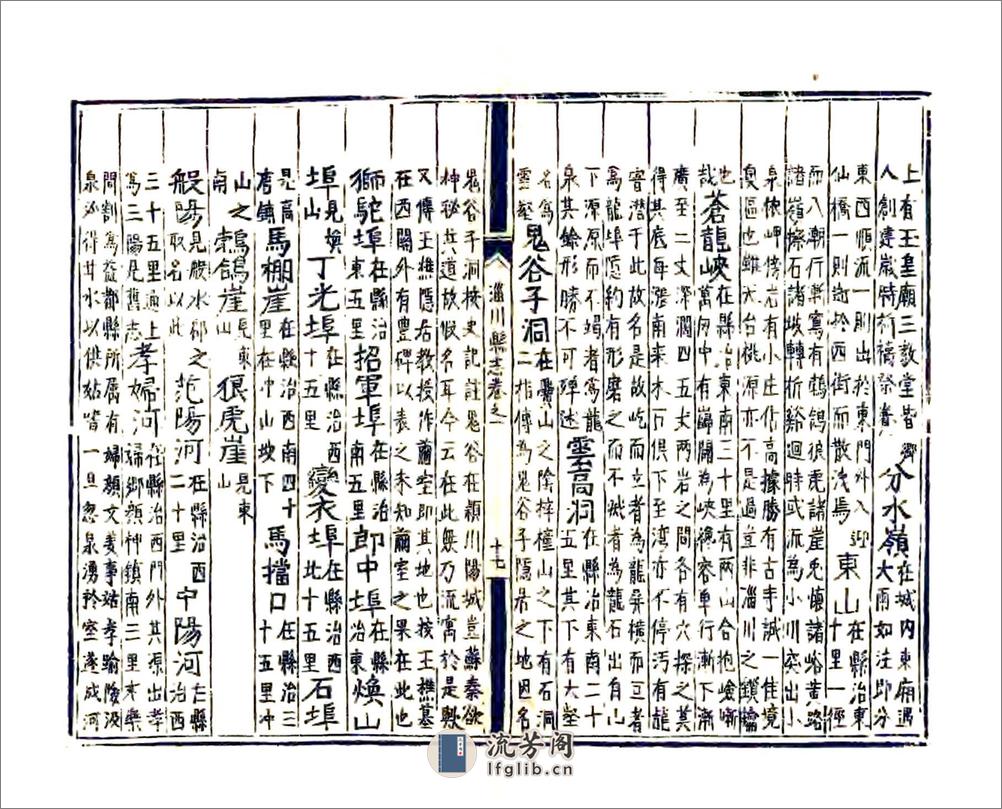 上有玉皇廟三教堂皆鄉
人創建歲時祈禱祭賽分水嶺在城內東廟遇大雨如注即分
東西順流一則出於東門外入迎
仙橋一則遶於西街而散洩焉東山在縣治東十里一徑
而入漸行漸寫有鶴鴿狼虎諸崖兎懷諸峪黃路
諸嶺擦石諸坡轉折谿迴時或派為小川突出小
泉依岬傍岩有小庄佔高據勝有古寺誠一佳境
奧區也雖天台桃源亦不是過豈非淄川之鎖鑰
也哉蒼龍峽在縣治東南三十里有兩山合抱嶮嘶萬狀中有巋闢為峽纔容單行漸下漸
廣至二丈深澗四五丈兩岩之間各有穴探之莫
得其底每漲南來水百俱下至湾亦不停汚有龍
窨潛于此故名是故屹而立者為龍吳橫而亘者
為龍埠隱約有形磨之而不找者為龍石出自山
下源源而不竭者寫龍
泉其餘形勝不可殫述雲高洞在縣治東南二十五里其下有大壑
名為雲壑鬼谷子洞在黌山之陰梓橦山之下有石洞二指傳為鬼谷子隱居之地因名
淄川縣志卷之一
十七
鬼谷子洞按史記註鬼谷在潁川陽城豈蘇秦欲
神秘其道故假名耳今云在此無乃流寓於是與
又傳王樵隱右教授作繭室即其地也按王樵墓
在西關外有豐碑以表之未知繭室之果在此也
獅駝埠在縣治東五里招軍埠在縣治南五里郎中埠在縣治東煥山
埠見煥山丁光埠在縣治西十五里變衣埠在縣治西北十五里石埠
見高唐鎮馬棚崖在縣治西南四十里在冲山坡下馬擋口在縣治三十五里冲
山之南鶴鴿崖見東山狼虎崖見東山
般陽見般水郡之陽取名以此范陽河在縣治西二十里中陽河在縣治西
三十五里通上寫三陽是舊志孝婦河在縣治西門外其源出孝婦鄉顏神鎮南三里本樂
問割寫益都縣所属有婦顏文姜事姑孝踰陵汲
泉必得甘水以供姑皆一旦忽泉湧於室遂成河
流芳阁
lfglib.cn